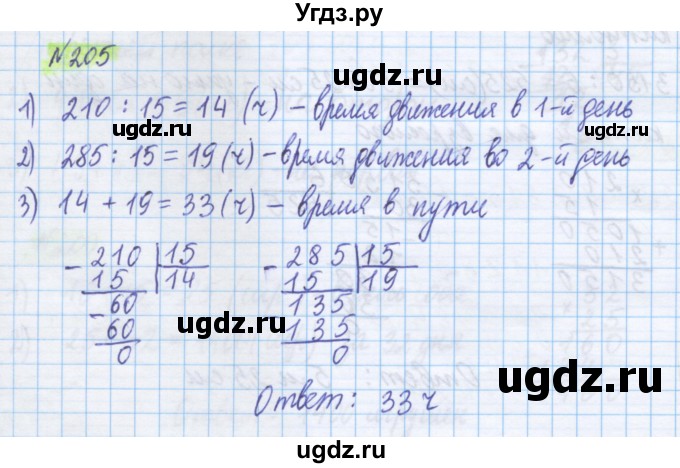 Угдз.ру
№205
1) 210 : 15 = 14 (ч) – время движения в 1-й день
2) 285 : 15 = 19 (ч) – время движения во 2-й день
3) 14 + 19 = 33 (ч) – время в пути
- 210 | 15
15 | 14
- 60
60
0
- 285 | 15
15 | 19
135
135
0
Ответ: 33 ч
ugdz.ru
ugdz.ru
ugdz.ru
ugdz.ru
ugdz.ru
ugdz.ru
ugdz.ru
ugdz.ru
ugdz.ru